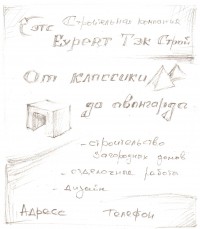 Строительная компания
Expert Тэк Строй
От классики
до авангарда
- строительство
загородных домов
- отделочные работы
- дизайн
Адресс Телефон